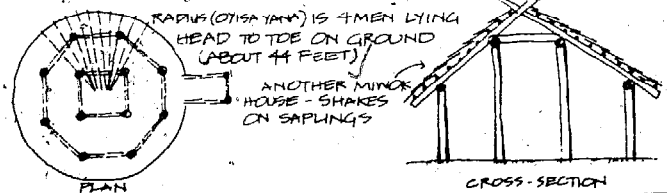 RADIUS (OYISA YANA) IS 4 MEN LYING
HEAD TO TOE ON GROUND
(ABOUT 44 FEET)
ANOTHER MINOR
HOUSE - SHAKES
ON SAPLINGS
PLAN
CROSS-SECTION